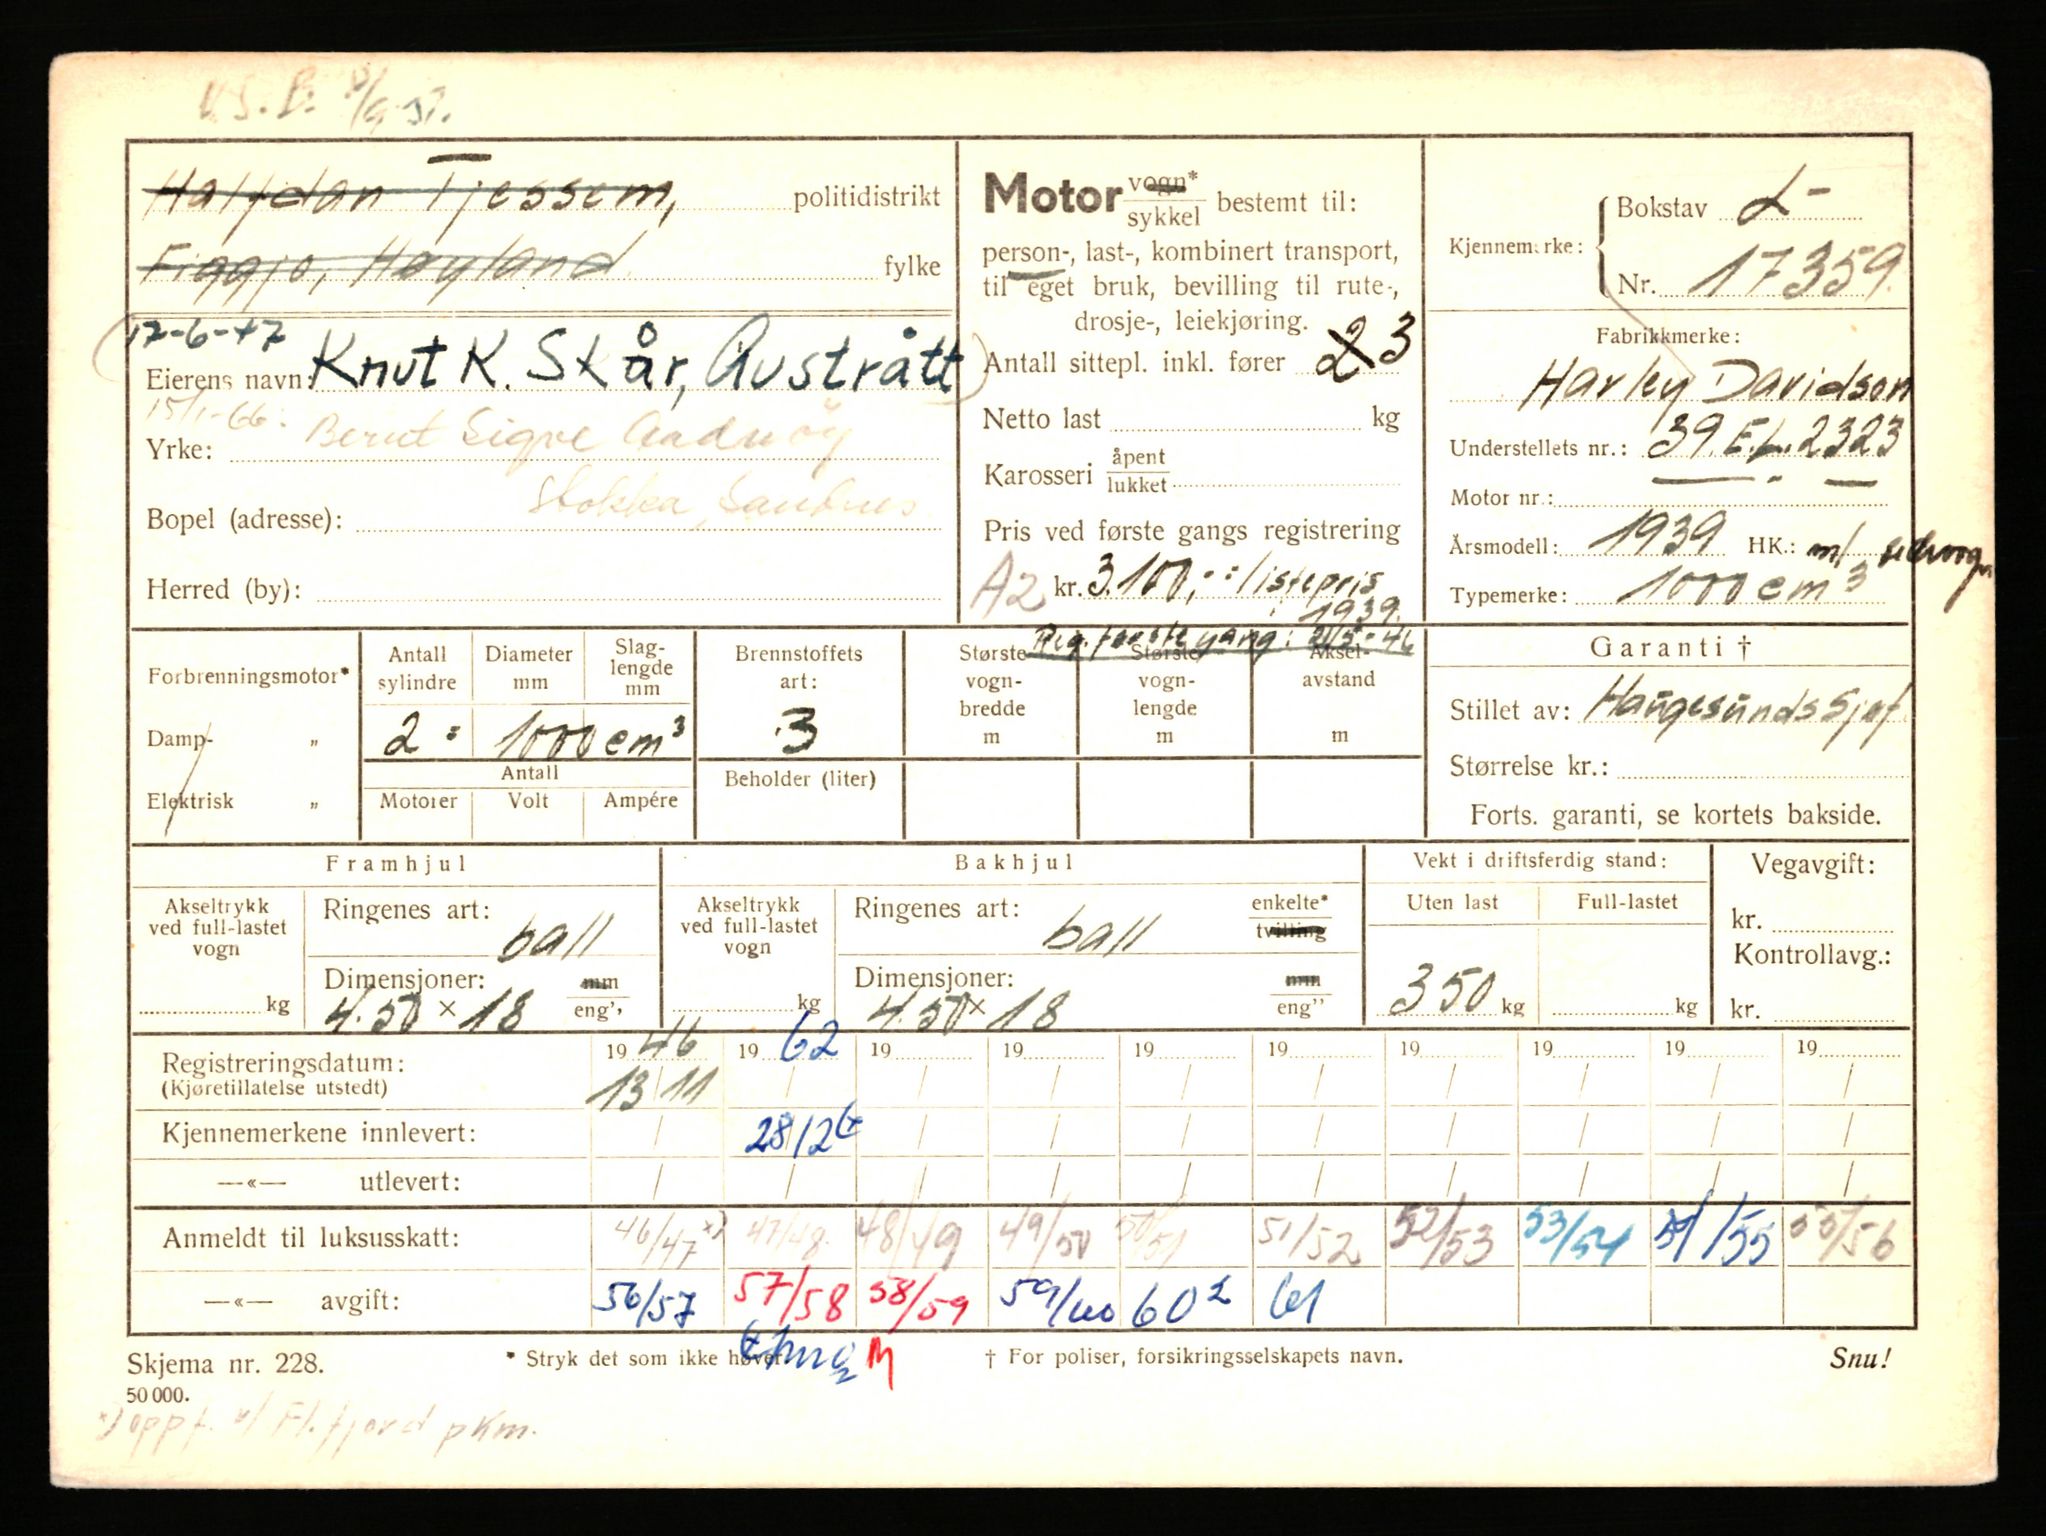 Halfdan Tjessem, politidistrikt
Figgjo, Høyland fylke
17-6-47
Eierens navn: Knut K. Skår, Austrått
15/1-66. Bernt Sigve Aadnøy
Yrke:
Stokka, Sandnes
Bopel (adresse):
Herred (by):
Motor vogn*
sykkel bestemt til:
person-, last-, kombinert transport,
til eget bruk, bevilling til rute-,
drosje-, leiekjøring.
Antall sittepl. inkl. fører 2 3
Netto last kg
Karosseri åpent
lukket
Pris ved første gangs registrering
A2 kr. 3.100,-: listepris
1939.
Reg. første gang: 21/5-46
Kjennemerke: Bokstav L-
Nr. 17359.
Fabrikkmerke:
Harley Davidson
Understellets nr.: 39.E.L.2323
Motor nr.:
Årsmodell: 1939 HK.: m/ sidevogn
Typemerke: 1000 cm3
Forbrenningsmotor*
Damp- „
Elektrisk „
Antall sylindre
Diameter mm
Slag-lengde mm
2 = 1000 cm3
Antall
Motorer Volt Ampére
Brennstoffets art:
3
Beholder (liter)
Største vogn-bredde m
Største vogn-lengde m
Aksel-avstand m
Garanti †
Stillet av: Haugesunds Sjøf.
Størrelse kr.:
Forts. garanti, se kortets bakside.
Framhjul
Akseltrykk ved full-lastet vogn
kg
Ringenes art: ball
Dimensjoner: mm
4.50 × 18 eng''
Bakhjul
Akseltrykk ved full-lastet vogn
kg
Ringenes art: ball enkelte*
tvilling
Dimensjoner: mm
4.50 × 18 eng''
Vekt i driftsferdig stand:
Uten last Full-lastet
350 kg kg
Vegavgift:
kr.
Kontrollavg.:
kr.
Registreringsdatum: 19 46 19 62 19 19 19 19 19 19 19 19
(Kjøretillatelse utstedt) 13/11 / / / / / / / / /
Kjennemerkene innlevert: / 28/12 / / / / / / / /
—«— utlevert: / / / / / / / / / /
Anmeldt til luksusskatt: 46/47 *) 47/48. 48/49 49/50 50/51 51/52 52/53 53/54 54/55 55/56
—«— avgift: 56/57 57/58 58/59 59/60 60 2 61
Skjema nr. 228. * Stryk det som ikke høver. M † For poliser, forsikringsselskapets navn. Snu!
50 000.
*) oppf. v/ Fl.fjord pkm.